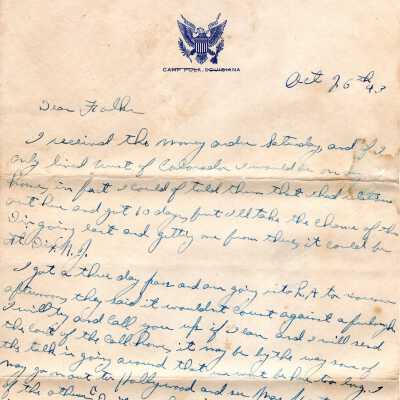 CAMP POLK, LOUISIANA
Oct 26th 43
Dear Folks
I received the money order Saturday and if I
only lived west of Colorado I would be on my
home, in fact I could of told them that that
out here and got 10 days but I'll take the chance of the
Div going east and getting me from there, it could be
At Dix N.J.
I got a three day pass and am going into L.A. tomorrow
afternoon, they said it wouldn't count against a furlough
I will try and call you up if I can and I will send
the cost of the call home, it may be by the way some of
the talk is going around that we wont be here too long. I
may go on out to Hollywood and see
of the other